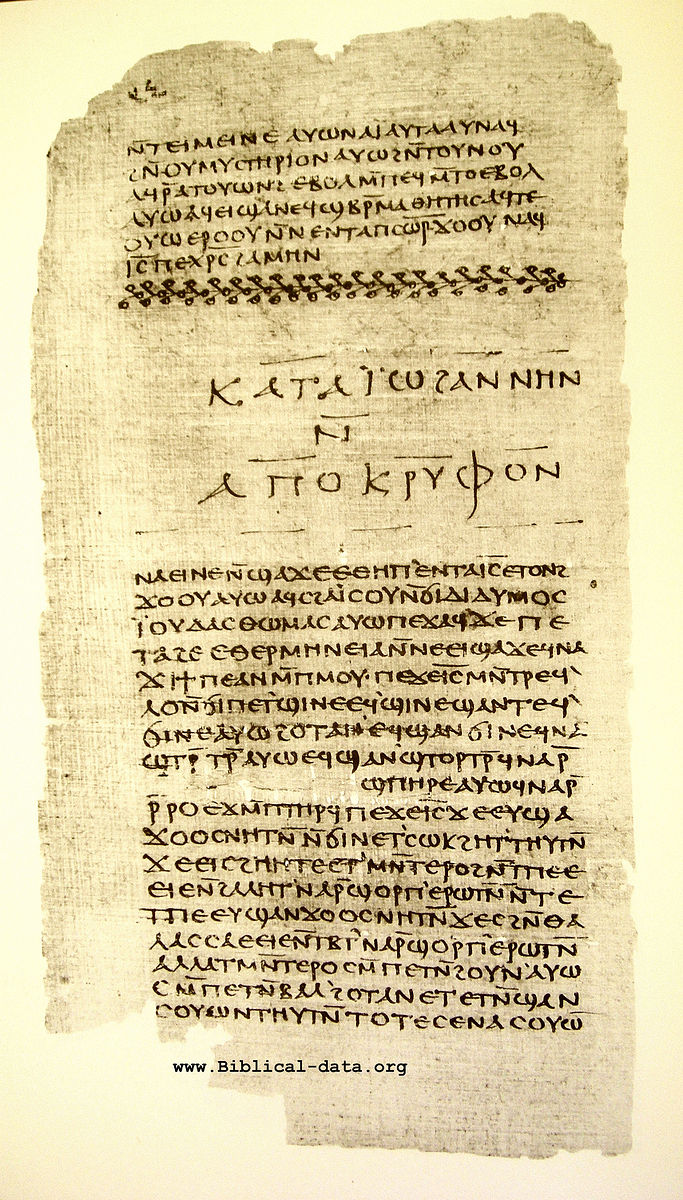 ⲛ̄ⲧⲉⲓⲙⲉⲓⲛⲉ ⲁⲩⲱ ⲛⲁⲓ̈ ⲁⲩⲧⲁⲁⲩ ⲛⲁϥ
ϩⲛ̄ ⲟⲩⲙⲩⲥⲧⲏⲣⲓⲟⲛ ⲁⲩⲱ ϩⲛ̄ ⲧⲟⲩⲛⲟⲩ
ⲁϥⲣ̄ⲁⲧⲟⲩⲱⲛϩ ⲉⲃⲟⲗ ⲙ̄ⲡⲉϥⲙ̄ⲧⲟ ⲉⲃⲟⲗ
ⲁⲩⲱ ⲁϥⲉⲓ ϣⲁ ⲛⲉϥϣⲃⲣ̄ⲙⲁⲑⲏⲧⲏⲥ ⲁϥⲧⲉ
ⲟⲩⲱ ⲉⲣⲟⲟⲩ ⲛ̄ⲛⲉⲛⲧⲁ ⲡⲥⲱ̄ⲣ̄ ϫⲟⲟⲩ ⲛⲁϥ
ⲓ̄ⲥ̄ ⲡⲉⲭⲣ̄ⲥ̄ ϩⲁⲙⲏⲛ
ⲕⲁⲧⲁ ⲓ̈ⲱϩⲁⲛⲛⲏⲛ
ⲛ̄ⲓ
ⲁⲡⲟⲕⲣⲩⲫⲟⲛ
ⲛⲁⲉⲓ ⲛⲉ ⲛ̄ϣⲁϫⲉ ⲉⲑⲏⲡ ⲉⲛⲧⲁ ⲓ̄ⲥ̄ ⲉⲧⲟⲛϩ
ϫⲟⲟⲩ ⲁⲩⲱ ⲁϥⲥϩⲁⲓ̈ⲥⲟⲩ ⲛ̄ϭⲓ ⲇⲓⲇⲩⲙⲟⲥ
ⲓ̈ⲟⲩⲇⲁⲥ ⲑⲱⲙⲁⲥ ⲁⲩⲱ ⲡⲉϫⲁϥ ϫⲉ ⲡⲉ
ⲧⲁϩⲉ ⲉⲑⲉⲣⲙⲏⲛⲉⲓⲁ ⲛ̄ⲛⲉⲉⲓϣⲁϫⲉ ϥⲛⲁ
ϫⲓ ϯⲡⲉ ⲁⲛ ⲙ̄ⲡⲙⲟⲩ· ⲡⲉϫⲉ ⲓ̄ⲥ̄ ⲙⲛ̄ⲧⲣⲉϥ
ⲗⲟ ⲛ̄ϭⲓ ⲡⲉⲧϣⲓⲛⲉ ⲉϥϣⲓⲛⲉ ϣⲁⲛⲧⲉϥ
ϭⲓⲛⲉ ⲁⲩⲱ ϩⲟⲧⲁⲛ ⲉϥϣⲁⲛϭⲓⲛⲉ ϥⲛⲁ
ϣⲧⲣ̄ⲧⲣ̄ ⲁⲩⲱ ⲉϥϣⲁⲛϣⲧⲟⲣⲧⲣ̄ ϥⲛⲁⲣ̄
ϣⲡⲏⲣⲉ ⲁⲩⲱ ϥⲛⲁⲣ̄
ⲣ̄ⲣⲟ ⲉϫⲙ̄ ⲡⲧⲏⲣϥ ⲡⲉϫⲉ ⲓ̄ⲥ̄ ϫⲉ ⲉⲩϣⲁ
ϫⲟⲟⲥ ⲛⲏⲧⲛ̄ ⲛ̄ϭⲓ ⲛⲉⲧⲥⲱⲕ ϩⲏⲧ ⲧⲏⲩⲧⲛ̄
ϫⲉ ⲉⲓⲥϩⲏⲏⲧⲉ ⲉⲧⲙⲛ̄ⲧⲉⲣⲟ ϩⲛ̄ ⲧⲡⲉ ⲉ
ⲉⲓⲉ ⲛ̄ϩⲁⲗⲏⲧ ⲛⲁⲣ̄ ϣⲟⲣⲡ ⲉⲣⲱⲧⲛ̄ ⲛ̄ⲧⲉ
ⲧⲡⲉ ⲉⲩϣⲁⲛϫⲟⲟⲥ ⲛⲏⲧⲛ̄ ϫⲉ ⲥϩⲛ̄ ⲑⲁ
ⲗⲁⲥⲥⲁ ⲉⲉⲓⲉ ⲛ̄ⲧⲃⲧ ⲛⲁⲣ̄ ϣⲟⲣⲡ ⲉⲣⲱⲧⲛ̄
ⲁⲗⲗⲁ ⲧⲙⲛ̄ⲧⲉⲣⲟ ⲥⲙ̄ⲡⲉⲧⲛ̄ϩⲟⲩⲛ ⲁⲩⲱ
ⲥⲙ̄ⲡⲉⲧⲛ̄ⲃⲁⲗ ϩⲟⲧⲁⲛ ⲉⲧⲉⲧⲛ̄ϣⲁⲛ
ⲥⲟⲩⲱⲛ ⲧⲏⲩⲧⲛ̄ ⲧⲟⲧⲉ ⲥⲉⲛⲁⲥⲟⲩⲱ̄
www.Biblical-data.org